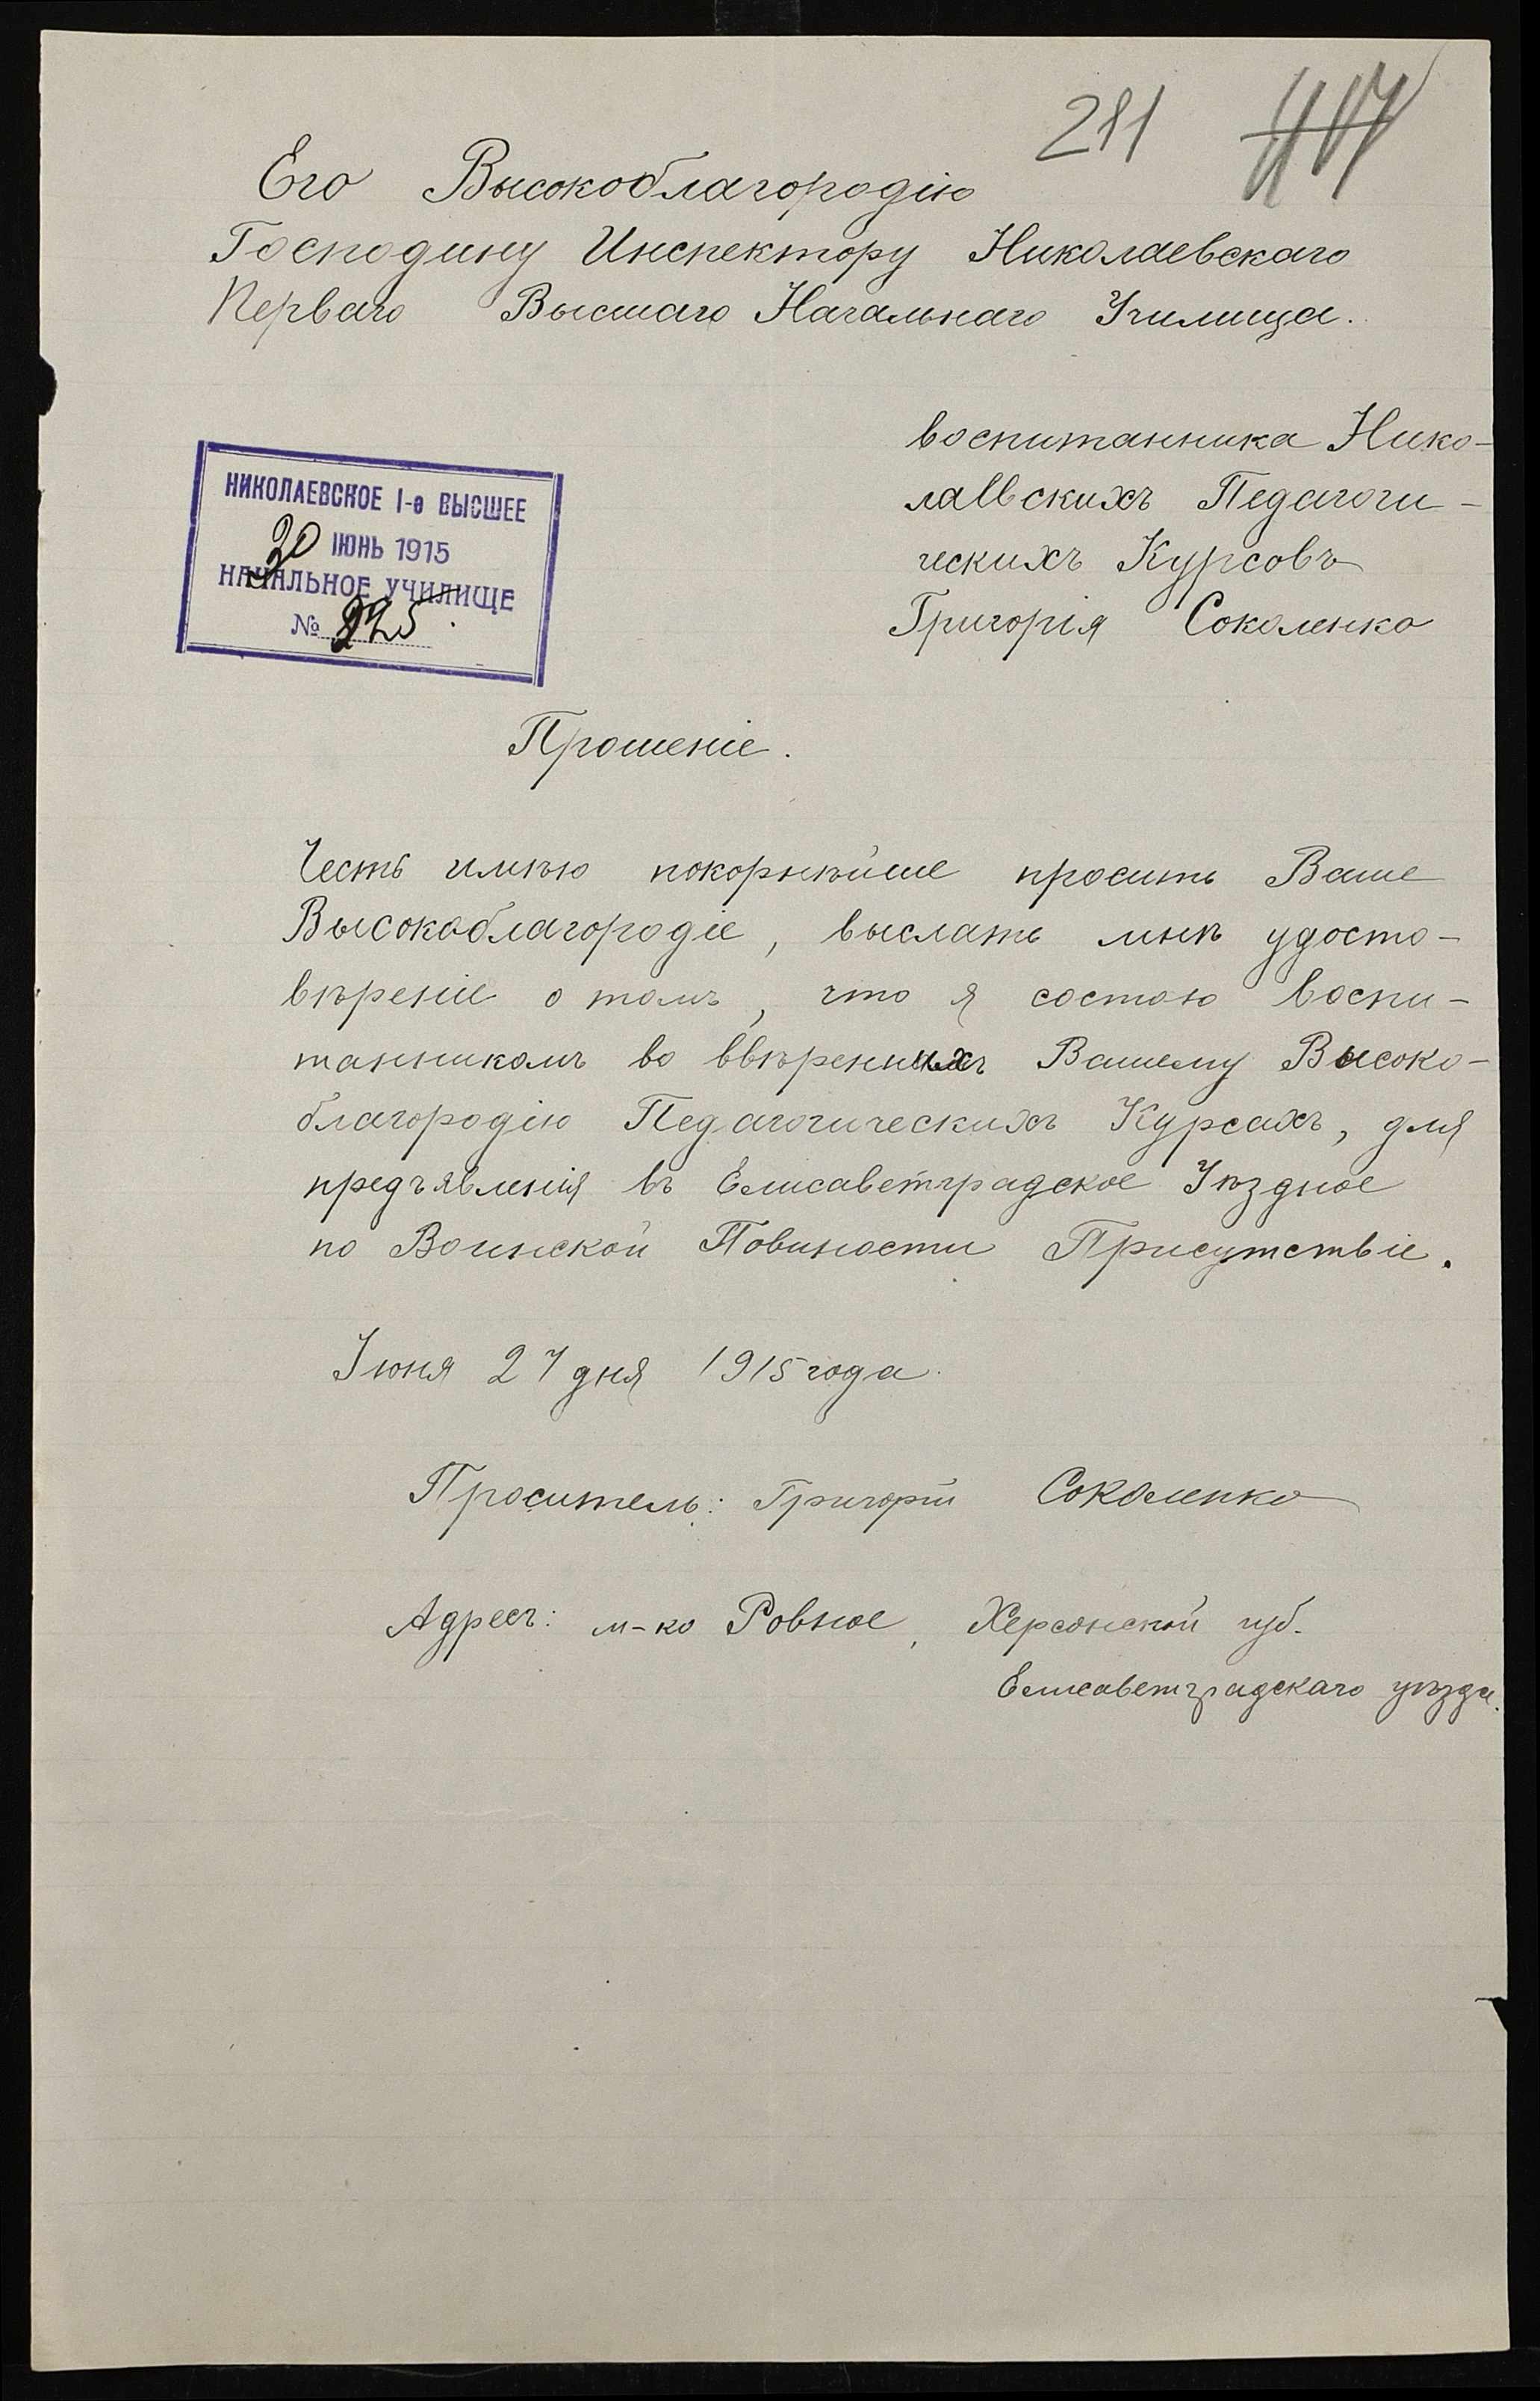 281
Его Высокоблагородію
Господину Инспектору Николаевскаго
Перваго Высшаго Начальнаго Училища.
воспитанника Нико-
лаевскихъ Педагоги-
ческихъ Курсовъ
Григорія Соколенко
НИКОЛАЕВСКОЕ I-е ВЫСШЕЕ
30 ІЮНЬ 1915
НАЧАЛЬНОЕ УЧИЛИЩЕ
№ 225
Прошеніе.
Честь имѣю покорнѣйше просить Ваше
Высокоблагородіе, выслать мнѣ удосто-
вѣреніе о томъ, что я состою воспи-
танникомъ во ввѣренныхъ Вашему Высоко-
благородію Педагогическихъ Курсахъ, для
предъявленія въ Елисаветградское Уѣздное
по Воинской Повиности Присутствіе.
Іюня 27 дня 1915 года.
Проситель: Григорій Соколенко
Адресъ: м-ко Ровное, Херсонской губ.
Елисаветградскаго уѣзда.